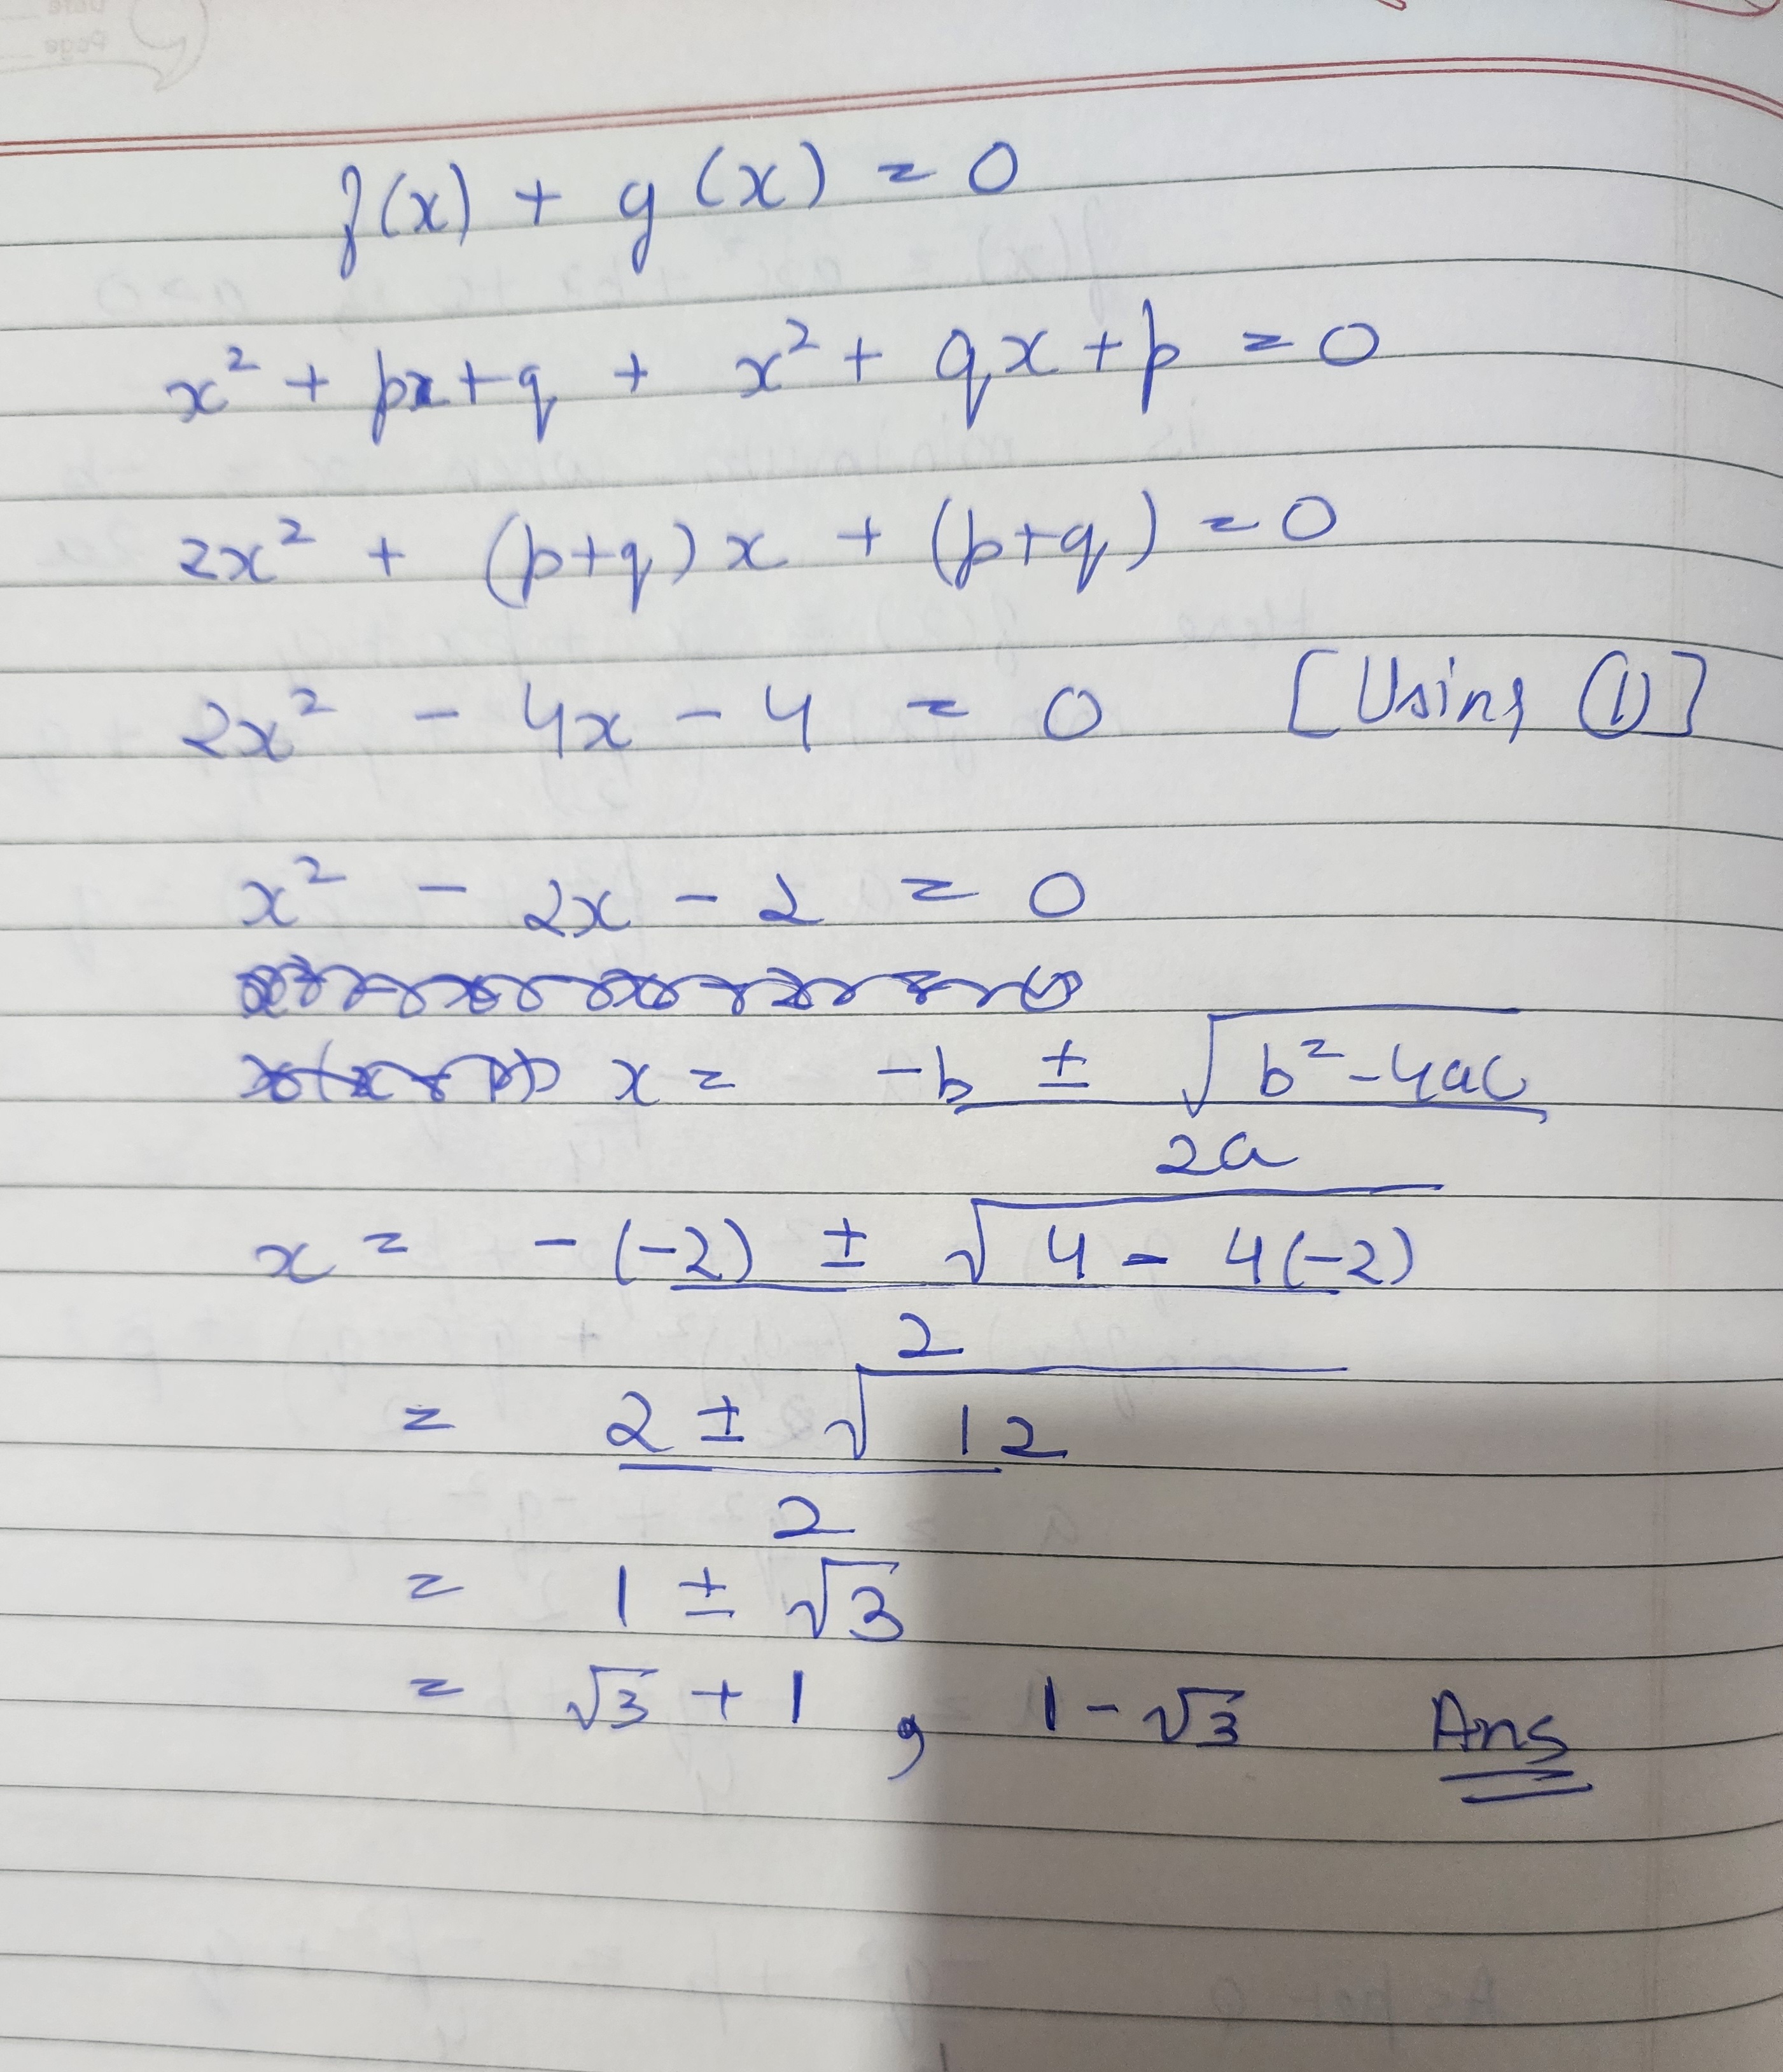 f(x) + g(x) = 0
x² + px + q + x² + qx + p = 0
2x² + (p+q)x + (p+q) = 0
2x² - 4x - 4 = 0 [Using ①]
x² - 2x - 2 = 0
x = -b ± √b²-4ac
2a
x = -(-2) ± √4 - 4(-2)
2
= 2 ± √12
2
= 1 ± √3
= √3 + 1 , 1 - √3 Ans